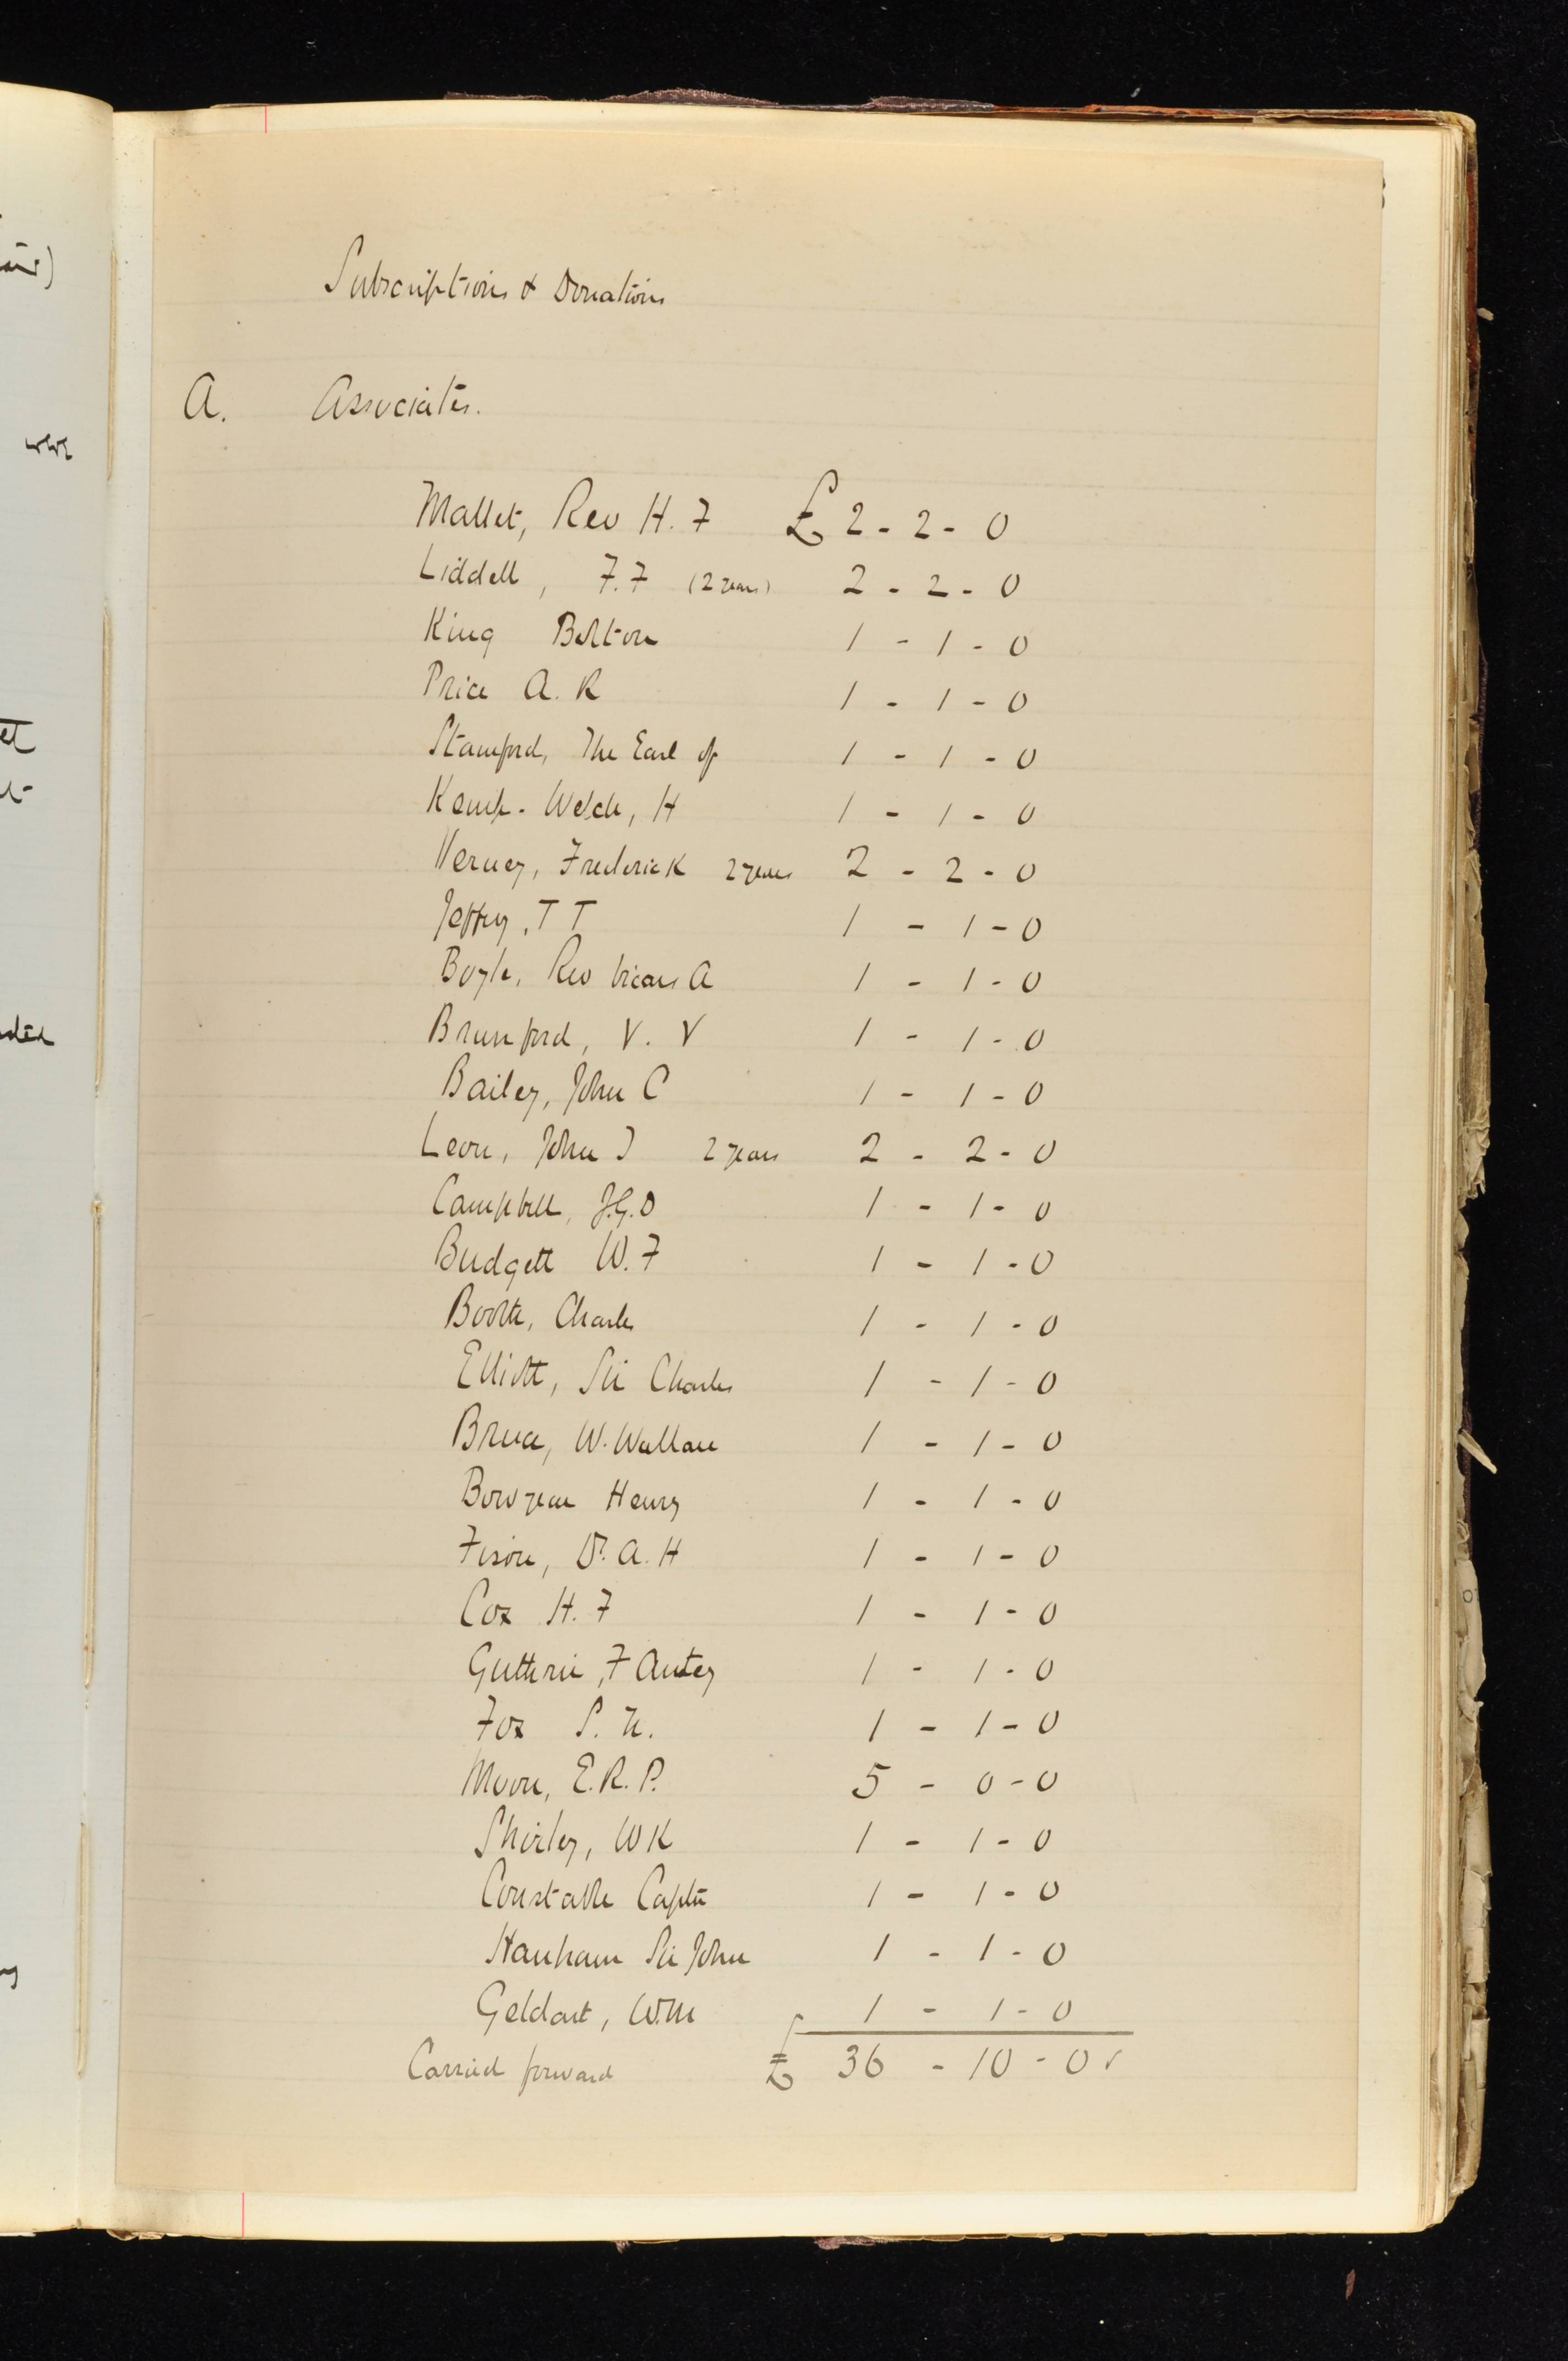 Subscriptions & Donations
A. Associates.
Mallet, Rev H. F £ 2 - 2 - 0
Liddell, F. F (2 years) 2 - 2 - 0
King Bolton 1 - 1 - 0
Price A. R 1 - 1 - 0
Stamford, The Earl of 1 - 1 - 0
Kemp-Welch, H 1 - 1 - 0
Verney, Frederick 2 years 2 - 2 - 0
Jeffrey, T T 1 - 1 - 0
Boyle, Rev Vicars A 1 - 1 - 0
Branford, V. V 1 - 1 - 0
Bailey, John C 1 - 1 - 0
Leon, John 2 years 2 - 2 - 0
Campbell, J.G.D 1 - 1 - 0
Budgett W. F 1 - 1 - 0
Booth, Charles 1 - 1 - 0
Elliott, Sir Charles 1 - 1 - 0
Bruce, W. Wallace 1 - 1 - 0
Bowyear Henry 1 - 1 - 0
Fison, Dr. A. H 1 - 1 - 0
Cox H. F 1 - 1 - 0
Guthrie, F 1 - 1 - 0
Fox S. N. 1 - 1 - 0
Moon, E. R. P. 5 - 0 - 0
Shirley, W K 1 - 1 - 0
Constable Captn 1 - 1 - 0
Hanham Sir John 1 - 1 - 0
Geldart, W.M 1 - 1 - 0
Carried forward £ 36 - 10 - 0 ✓